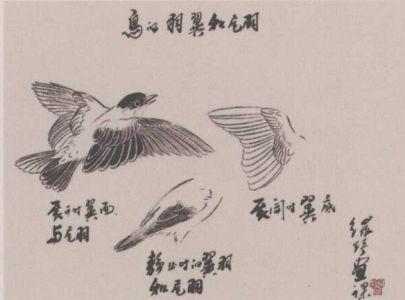 鸟的羽翼和尾羽
展开时翼面
与尾羽
展开时翼底
静止时的翼羽
和尾羽
画课